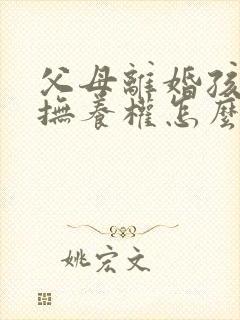 父母離婚孩
撫養權怎麼
姚宏文